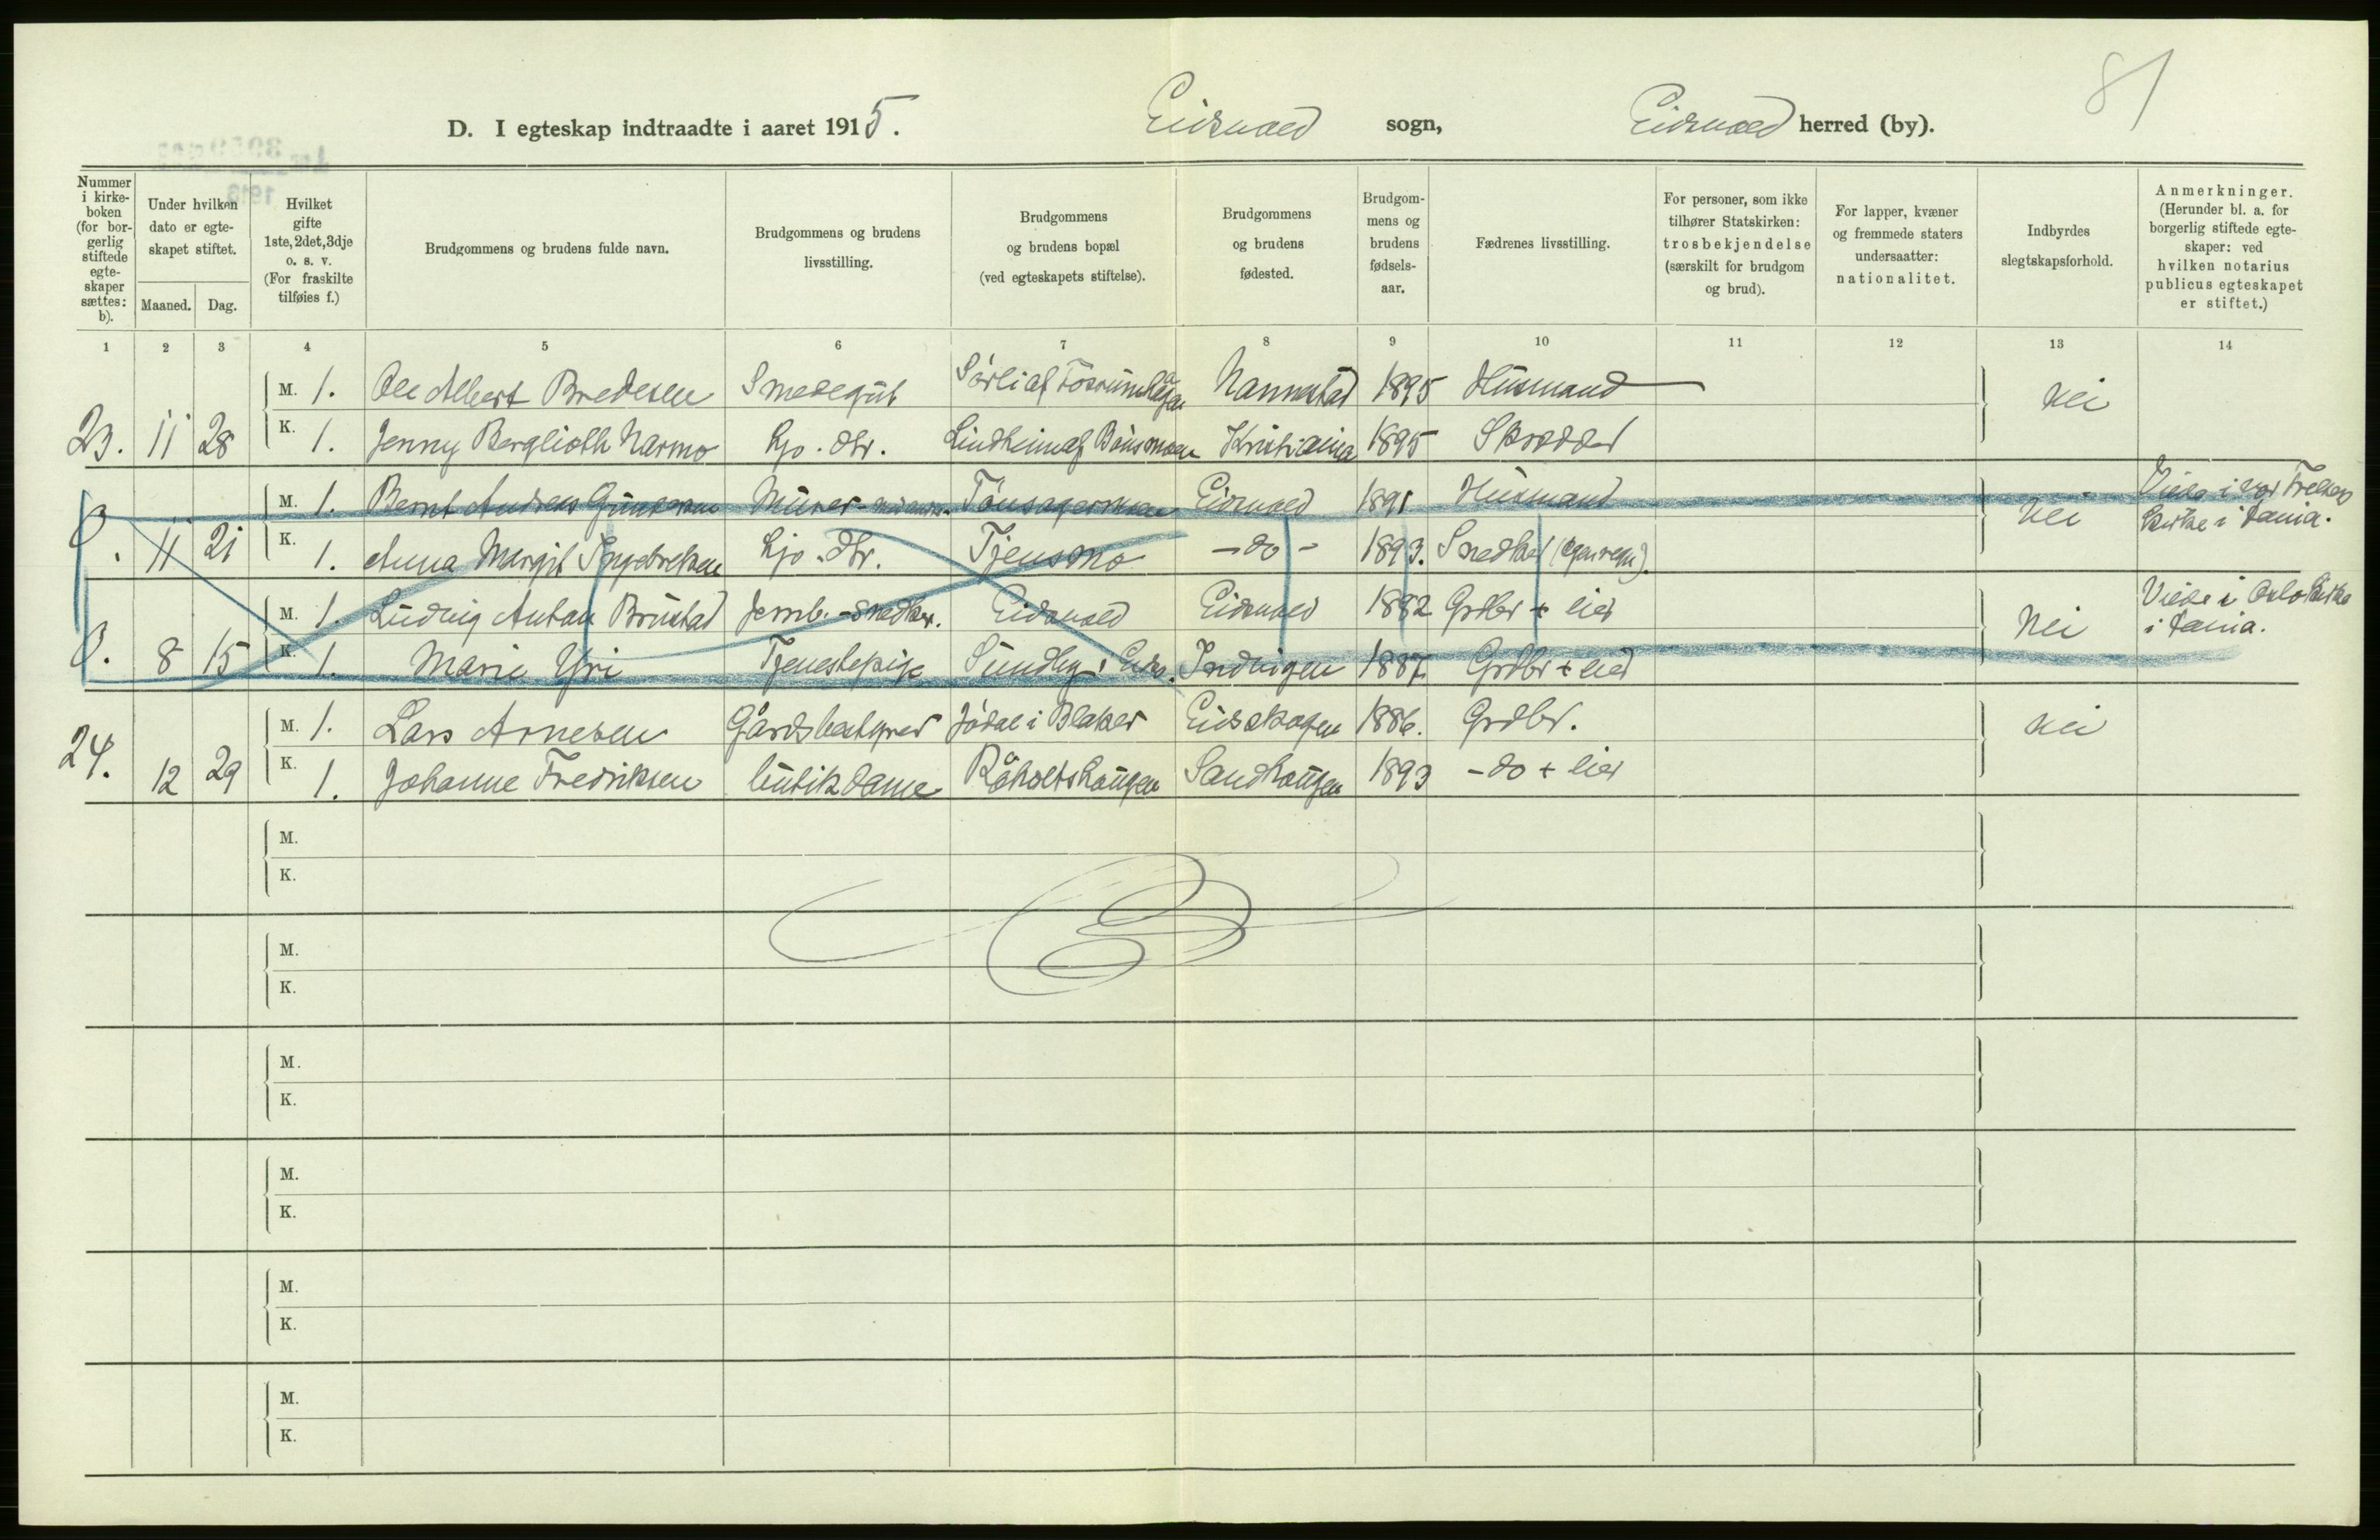 81
D. I egteskap indtraadte i aaret 1915. Eidsvold sogn, Eidsvold herred (by).
Nummer i kirke-boken (for bor-gerlig stiftede egte-skaper sættes: b).
Under hvilken dato er egte-skapet stiftet.
Maaned. Dag.
Hvilket gifte 1ste, 2det, 3dje o. s. v. (For fraskilte tilføies f.)
Brudgommens og brudens fulde navn.
Brudgommens og brudens livsstilling.
Brudgommens og brudens bopæl (ved egteskapets stiftelse).
Brudgommens og brudens fødested.
Brudgom-mens og brudens fødsels-aar.
Fædrenes livsstilling.
For personer, som ikke tilhører Statskirken: trosbekjendelse (særskilt for brudgom og brud).
For lapper, kvæner og fremmede staters undersaatter: nationalitet.
Indbyrdes slegtskapsforhold.
Anmerkninger. (Herunder bl. a. for borgerlig stiftede egte-skaper: ved hvilken notarius publicus egteskapet er stiftet.)
1 2 3 4 5 6 7 8 9 10 11 12 13 14
M. 1. Ole Albert Bredesen Smedegut Sørli af Nannestad 1895 Husmand Nei
23. 11 28 K. 1. Jenny Bergljoth Narmo Hjo. dtr. Lindheim af Bønsmoen Kristiania 1895 Skrædder
M. 1. Bernt Andreas Gundersen Murer Tønsagermoen Eidsvold 1891 Husmand Nei Viede i Vor Frelsers Kirke i Kania.
0. 11 21 K. 1. Anna Margit Ingebretsen Hjo. dtr. Tjensmo - do - 1893. Snedker (egen regn).
M. 1. Ludvig Anton Brustad Jernb.-snedker. Eidsvold Eidsvold 1882 Grdbr + eier Nei Viede i Oslo Kirke i Kania.
0. 8 15 K. 1. Marie Yri Tjenestepige Sundby i Eids. Indvigen 1887 Grdbr + eier
M. 1. Lars Arnesen Gårdsbestyrer Jødal i Blaker Eidskogen 1886. Grdbr. Nei
24. 12 29 K. 1. Johanne Fredriksen butikdame Råholtshaugen Sandhaugen 1893 - do + eier
M.
K.
M.
K.
M.
K.
M.
K.
M.
K.
M.
K.